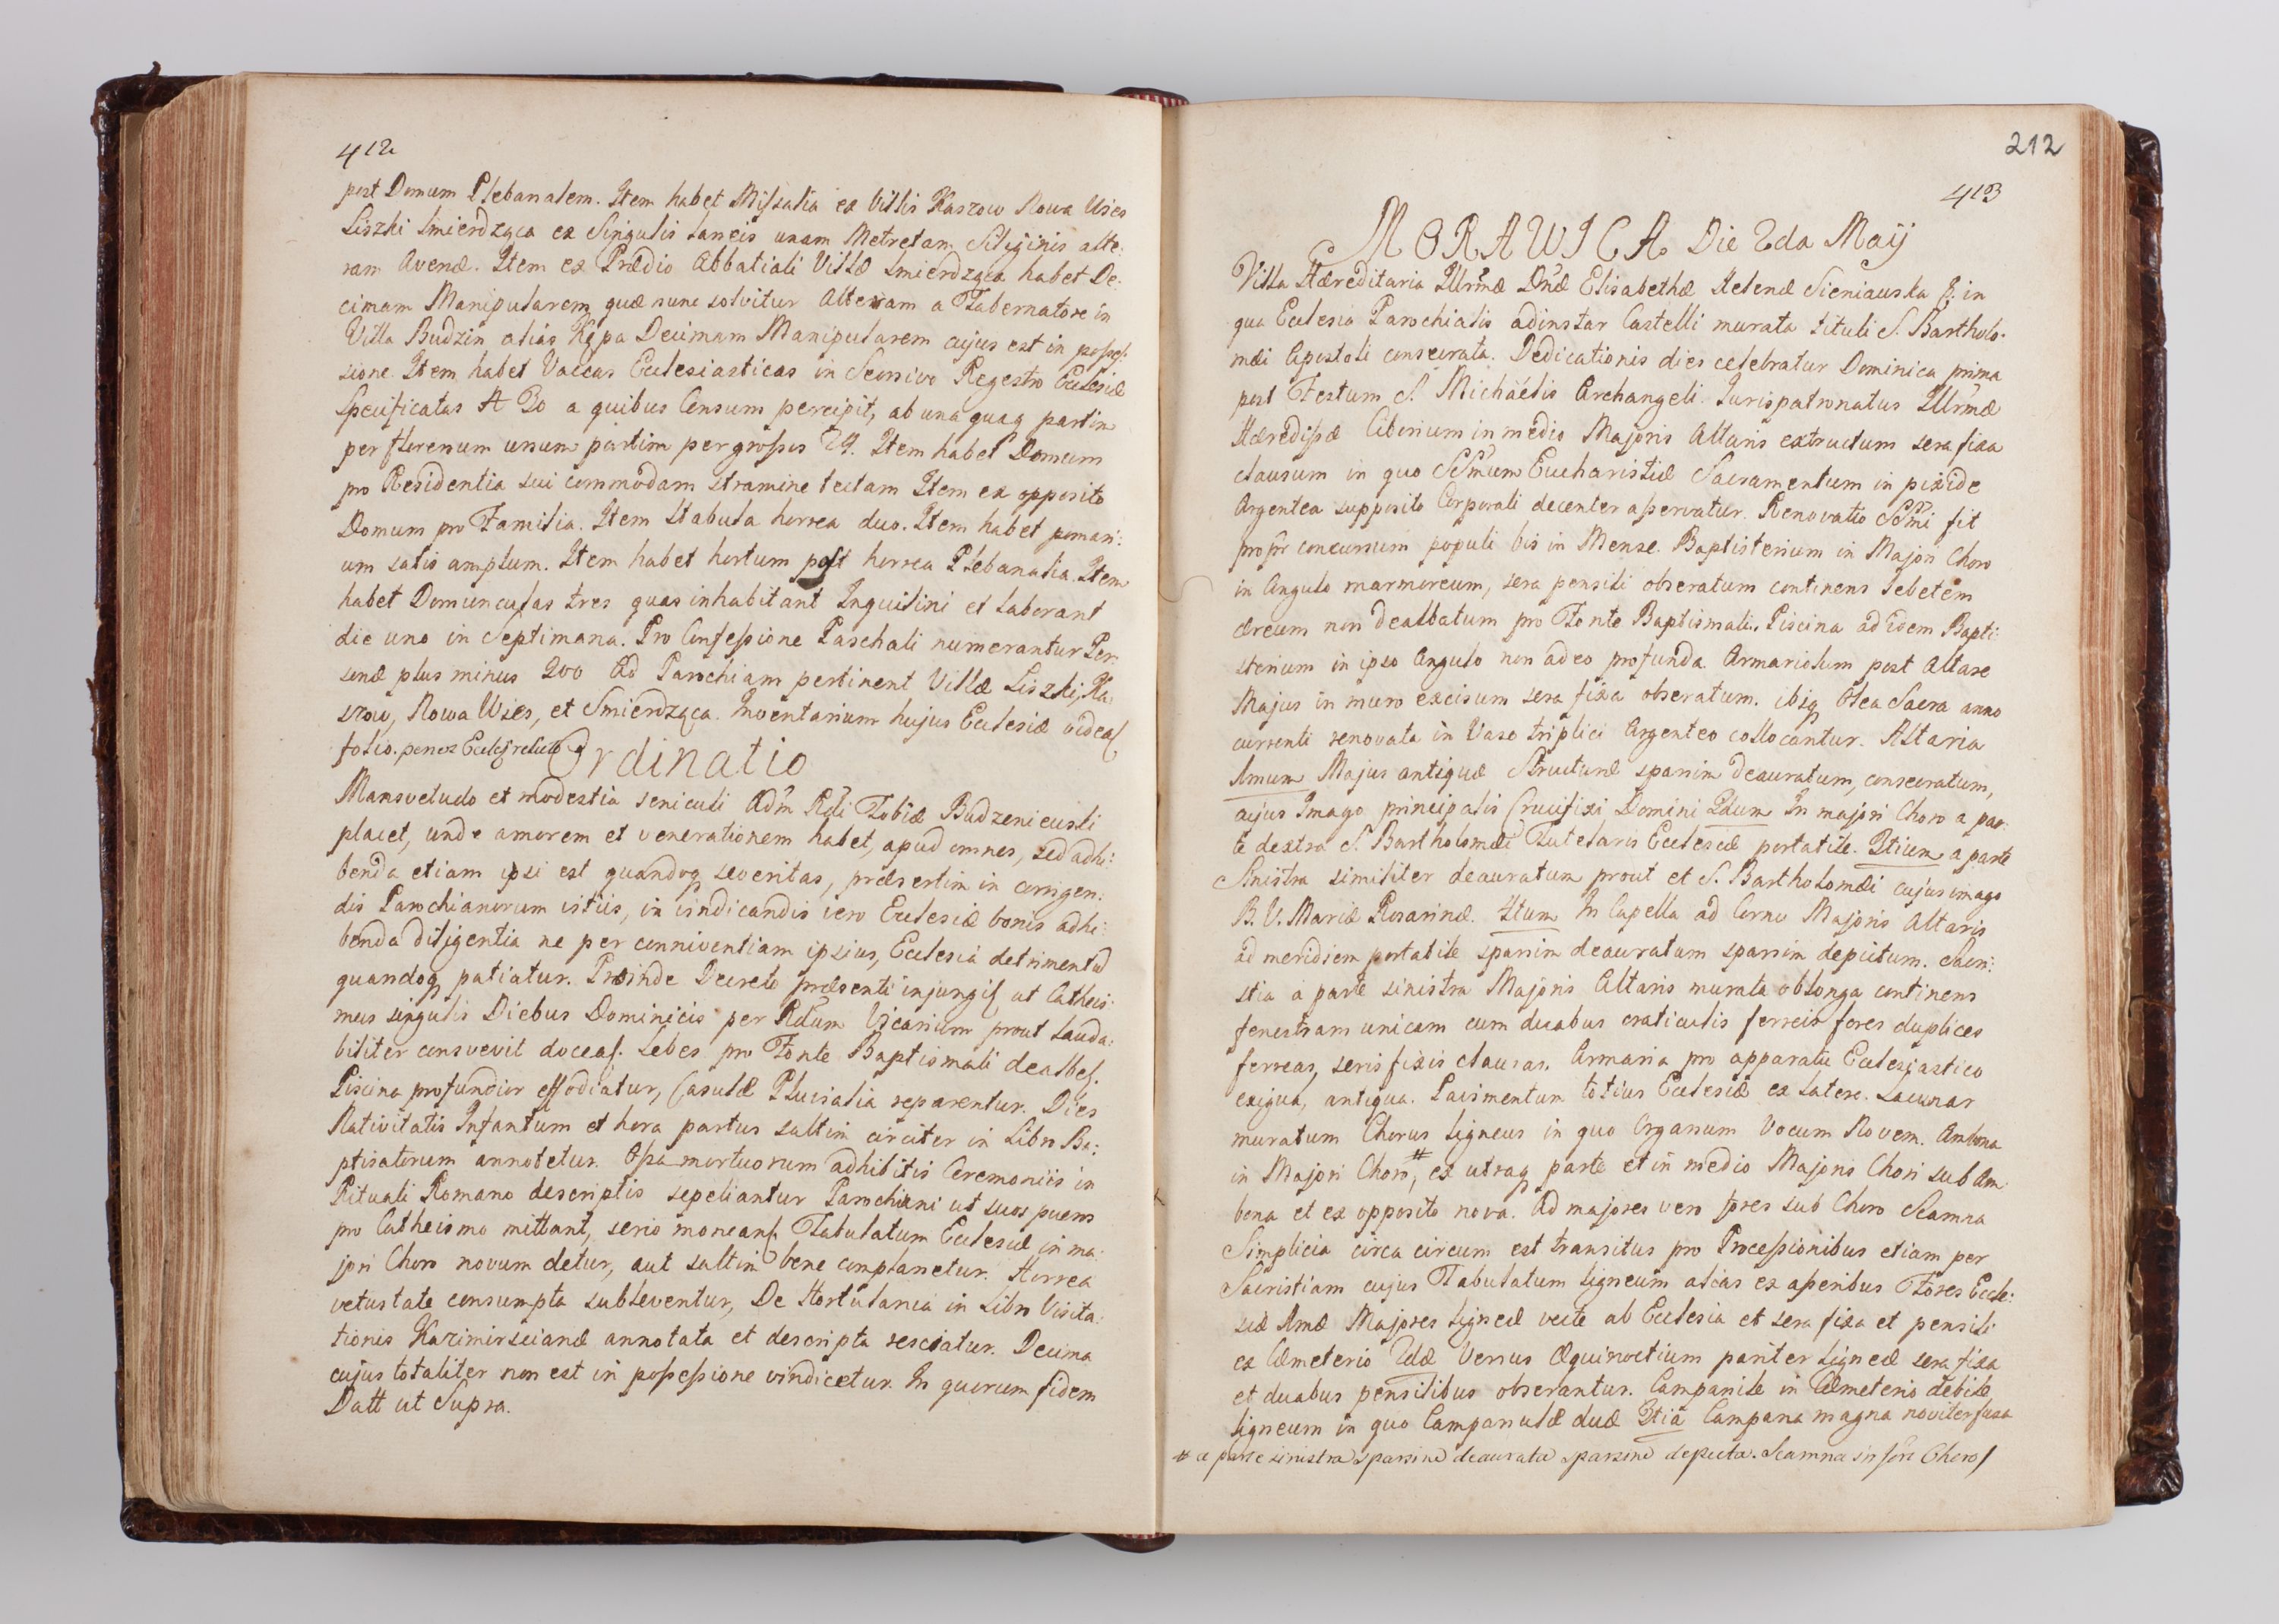 412
post Domum Plebanalem. Item habet Missalia ex Villis Kaszow Nowa Wies
Liszki Smierdząca ex Singulis Laneis unam Metretam Siliginis alte:
ram Avenæ. Item ex Prædio Abbatiali Villæ Smierdząca habet De:
cimam Manipularem quæ nunc solvitur Alteram a Tabernatore in
Villa Budzin alias Kępa Decimam Manipularem cujus est in posses:
sione. Item habet Vaccas Ecclesiasticas in Regestro Ecclesiæ
Specificatas a quibus Censum percipit, ab una quaq partim
per florenum unum partim per grossos 24. Item habet Domum
pro Residentia sui commodam stramine tectam Item ex opposito
Domum pro Familia. Item Stabula horrea duo. Item habet pomari:
um satis amplum. Item habet hortum post horrea Plebanalia. Item
habet Domunculas tres quas inhabitant Inquilini et laborant
die uno in Septimana. Pro Confessione Paschali numerantur Per:
sonæ plus minus 200 Ad Parochiam pertinent Villæ Liszki, Ka:
szow, Nowa Wies, et Smierdząca. Inventarium hujus Ecclesiæ videat
folio. penes
Ordinatio
Mansvetudo et modestia seniculi Adm Rdi Tobiæ Budzenicuski
placet, unde amorem et venerationem habet, apud omnes, sed adhi:
benda etiam ipsi est quandoq severitas, præsertim in corrigen:
dis Parochianorum vitiis, in vindicandis vero Ecclesiæ bonis adhi:
benda diligentia ne per conniventiam ipsius, Ecclesia detrimentū
quandoq patiatur. Proinde Decreto præsenti injungit ut Catheis:
mus singulis Diebus Dominicis per Rdum Vicarium prout lauda:
biliter consvevit doceat. Lebes pro Fonte Baptismali dealbet.
Piscina profundior effodiatur, Casulæ Pluvialia reparentur. Dies
Nativitatis Infantum et hora partus saltim circiter in Libro Ba:
ptisatorum annotetur. Ossa mortuorum adhibitis Ceremoniis in
Rituali Romano descriptis sepeliantur Parochiani ut suos pueros
pro Catheismo mittant, serio moneant. Tabulatum Ecclesiæ in ma:
jori Choro novum detur, aut saltim bene complanetur. Horrea
vetustate consumpta subleventur, De Hortulania in Libro Visita:
tionis Kazimirscianæ annotata et descripta resciatur. Decima
cujus totaliter non est in possessione vindicetur. In quorum fidem
Datt ut Supra.
212
413
MORAWICA Die 2da Maij
Villa Hæreditaria Illrmæ Dnæ Elisabethæ Helenæ Sieniauska E. in
qua Ecclesia Parochialis adinstar Castelli murata tituli S. Bartholo:
mæi Apostoli consecrata. Dedicationis dies celebratur Dominica prima
post Festum S. Michaëlis Archangeli. Jurispatronatus Illrmæ
Hæredissæ Ciborium in medio Majoris Altaris extructum sera fixa
clausum in quo SSmum Eucharistiæ Sacramentum in pixide
Argentea supposito Corporali decenter asservatur. Renovatio SSmi fit
propr concursum populi bis in Mense. Baptisterium in Majori Choro
in Angulo marmoreum, sera pensili obseratum continens Lebetem
æreum non dealbatum pro Fonte Baptismali. Piscina ad idem Bapti:
sterium in ipso Angulo non adeo profunda. Armariolum post Altare
Majus in muro excisum sera fixa obseratum. ibiq Olea Sacra anno
currenti renovata in Vaso triplici Argenteo collocantur. Altaria
1mum Majus antiquæ Structuræ sparsim deauratum, consecratum,
cujus Imago principalis Crucifixi Domini 2dum In majori Choro a par:
te dextra S. Bartholomæi Tutelaris Ecclesiæ portatile. 3tium a parte
Sinistra similiter deauratum prout et S. Bartholomæi cujus imago
B. V. Mariæ Rosarinæ. 4tum In Capella ad Cornu Majoris Altaris
ad meridiem portatile sparsim deauratum sparsim depictum. Sacri:
stia a parte sinistra Majoris Altaris murata oblonga continens
fenestram unicam cum duabus craticulis ferreis fores duplices
ferreas, seris fixis clausas. Armaria pro apparatu Ecclesiastico
exigua, antiqua. Pavimentum totius Ecclesiæ ex latere. Lacunar
muratum Chorus ligneus in quo Organum Vocum Novem. Ambona
in Majori Choro,# ex utraq parte et in medio Majoris Chori sub Am
bona et ex opposito nova. Ad majores vero fores sub Choro Scamna
Simplicia circa circum est transitus pro Processionibus etiam per
Sacristiam cujus Tabulatum ligneum alias ex asseribus Fores Eccle:
siæ 1mæ Majores ligneæ vecte ab Ecclesia et sera fixa et pensili
ex Cæmeterio 2dæ Versus Æquinoctium pariter ligneæ sera fixa
et duabus pensilibus obserantur. Campanile in Cæmeterio debile
ligneum in quo Campanulæ duæ 3tia Campana magna noviter fusa
# a parte sinistra sparsim deaurata sparsim depicta. Scamna in Choro